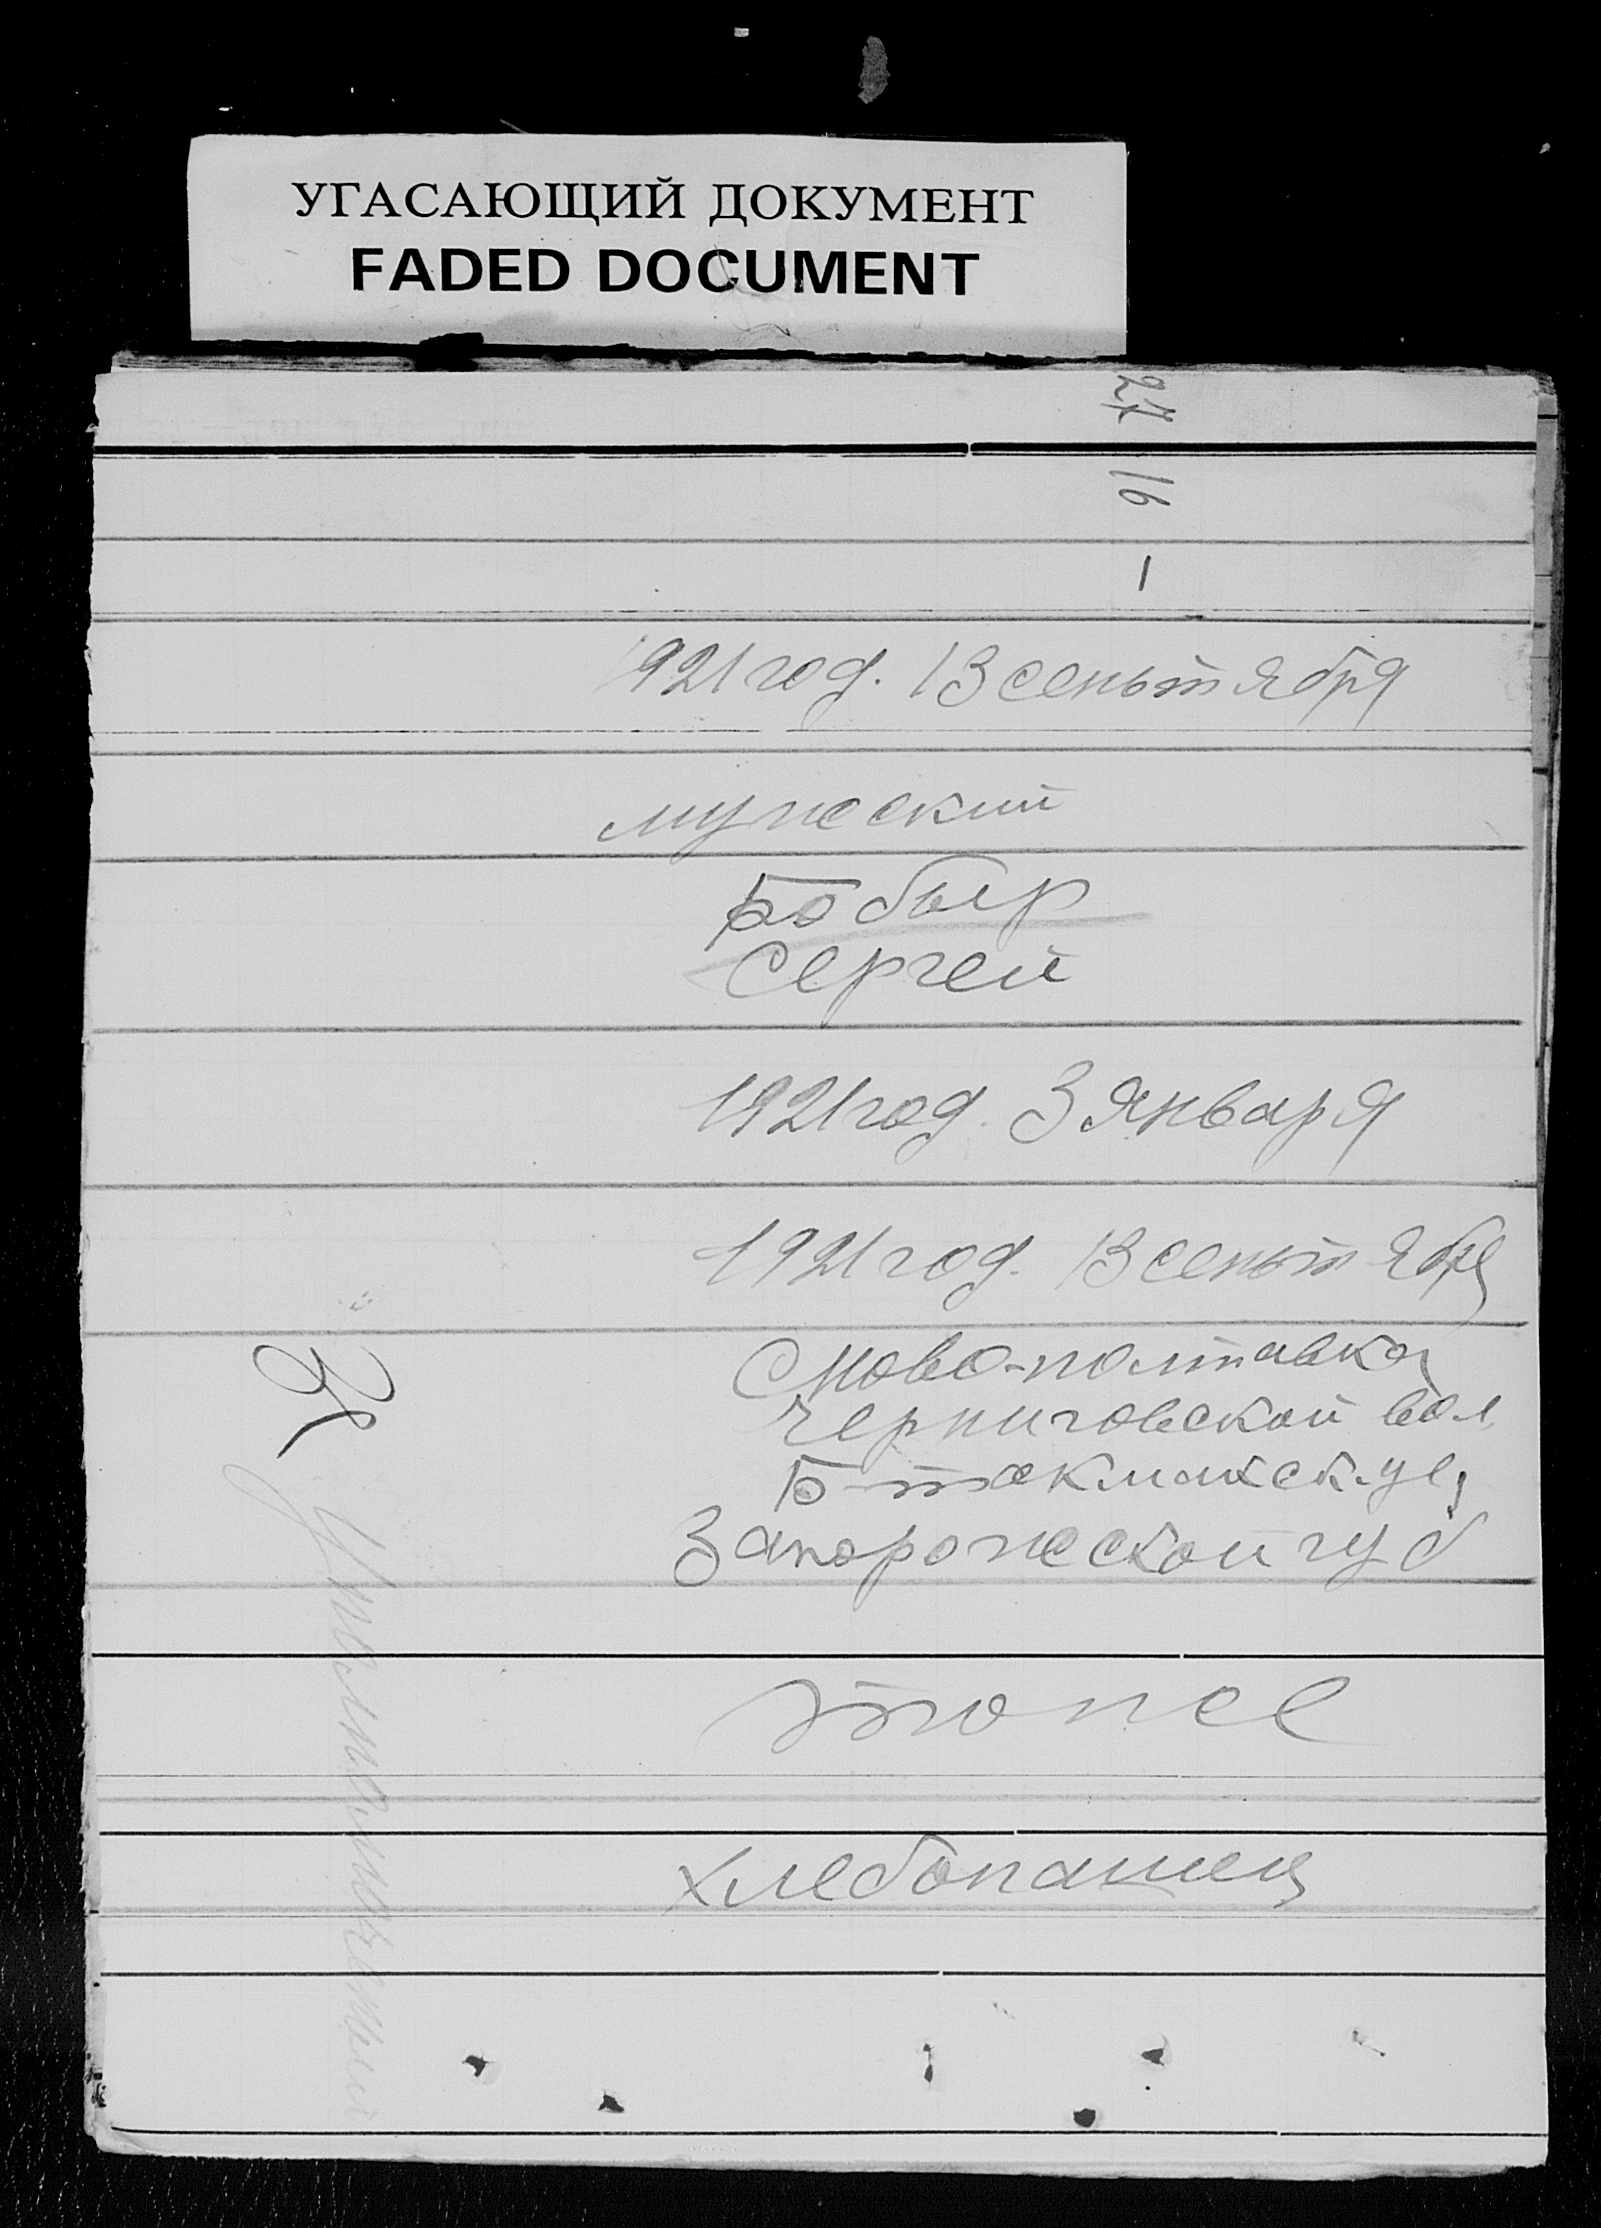 УГАСАЮЩИЙ ДОКУМЕНТ
FADED DOCUMENT
27
16
1921 год. 13 сеньтября
мужеский
Бобыр
Сергей
1921 год. 3 января
1921 год. 13 сеньтябр
с Ново-полтавка
черниговской вол
Б-токмакск. уе,
Запорожеской губ
тоже
хлебопашец